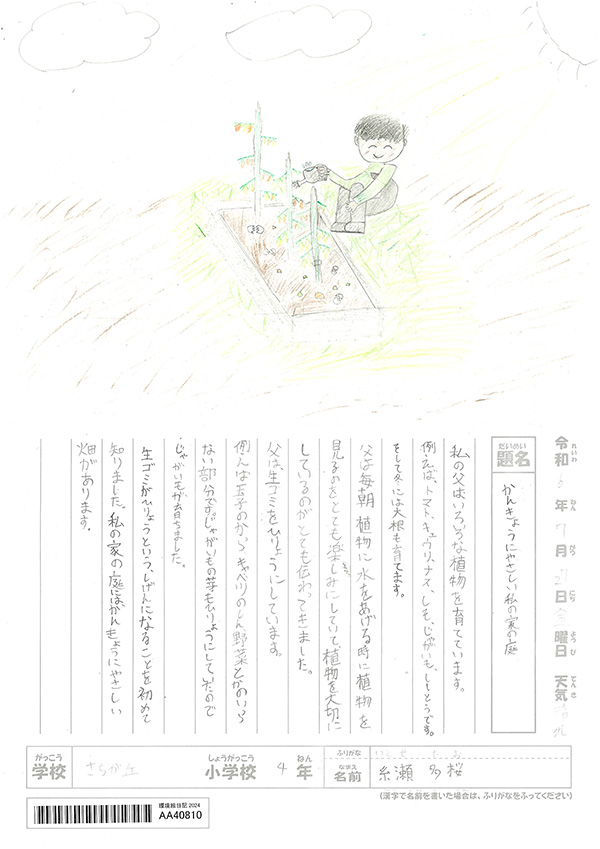 令和6年7月 日 曜日 天気
れいわ ねん がつ にち ようび てんき
だいめい
題名
かんきょうにやさしい私の家の庭
私の父はいろいろな植物を育てています。
例えば、トマト、キュウリ、ナス、しそ、じゃがいも、ししとうです。
そして冬には大根も育てます。
父は毎朝植物に水をあげる時に植物を
見るのをとても楽しみにしていて植物を大切に
しているのがとても伝わってきました。
父は、生ゴミをひりょうにしています。
例えば玉子のから、キャベツのしん野菜とかのいら
ない部分です。じゃがいもの芽もひりょうにしていたので
じゃがいもが育ちました。
生ゴミがひりょうという、しげんになることを初めて
知りました。私の家の庭には、かんきょうにやさしい
畑があります。
がっこう
学校
さちが丘
しょうがっこう
小学校
4
ねん
年
ふりがな
なまえ
名前
糸瀬 多桜
(漢字で名前を書いた場合は、ふりがなをふってください)
環境絵日記 2024
AA40810